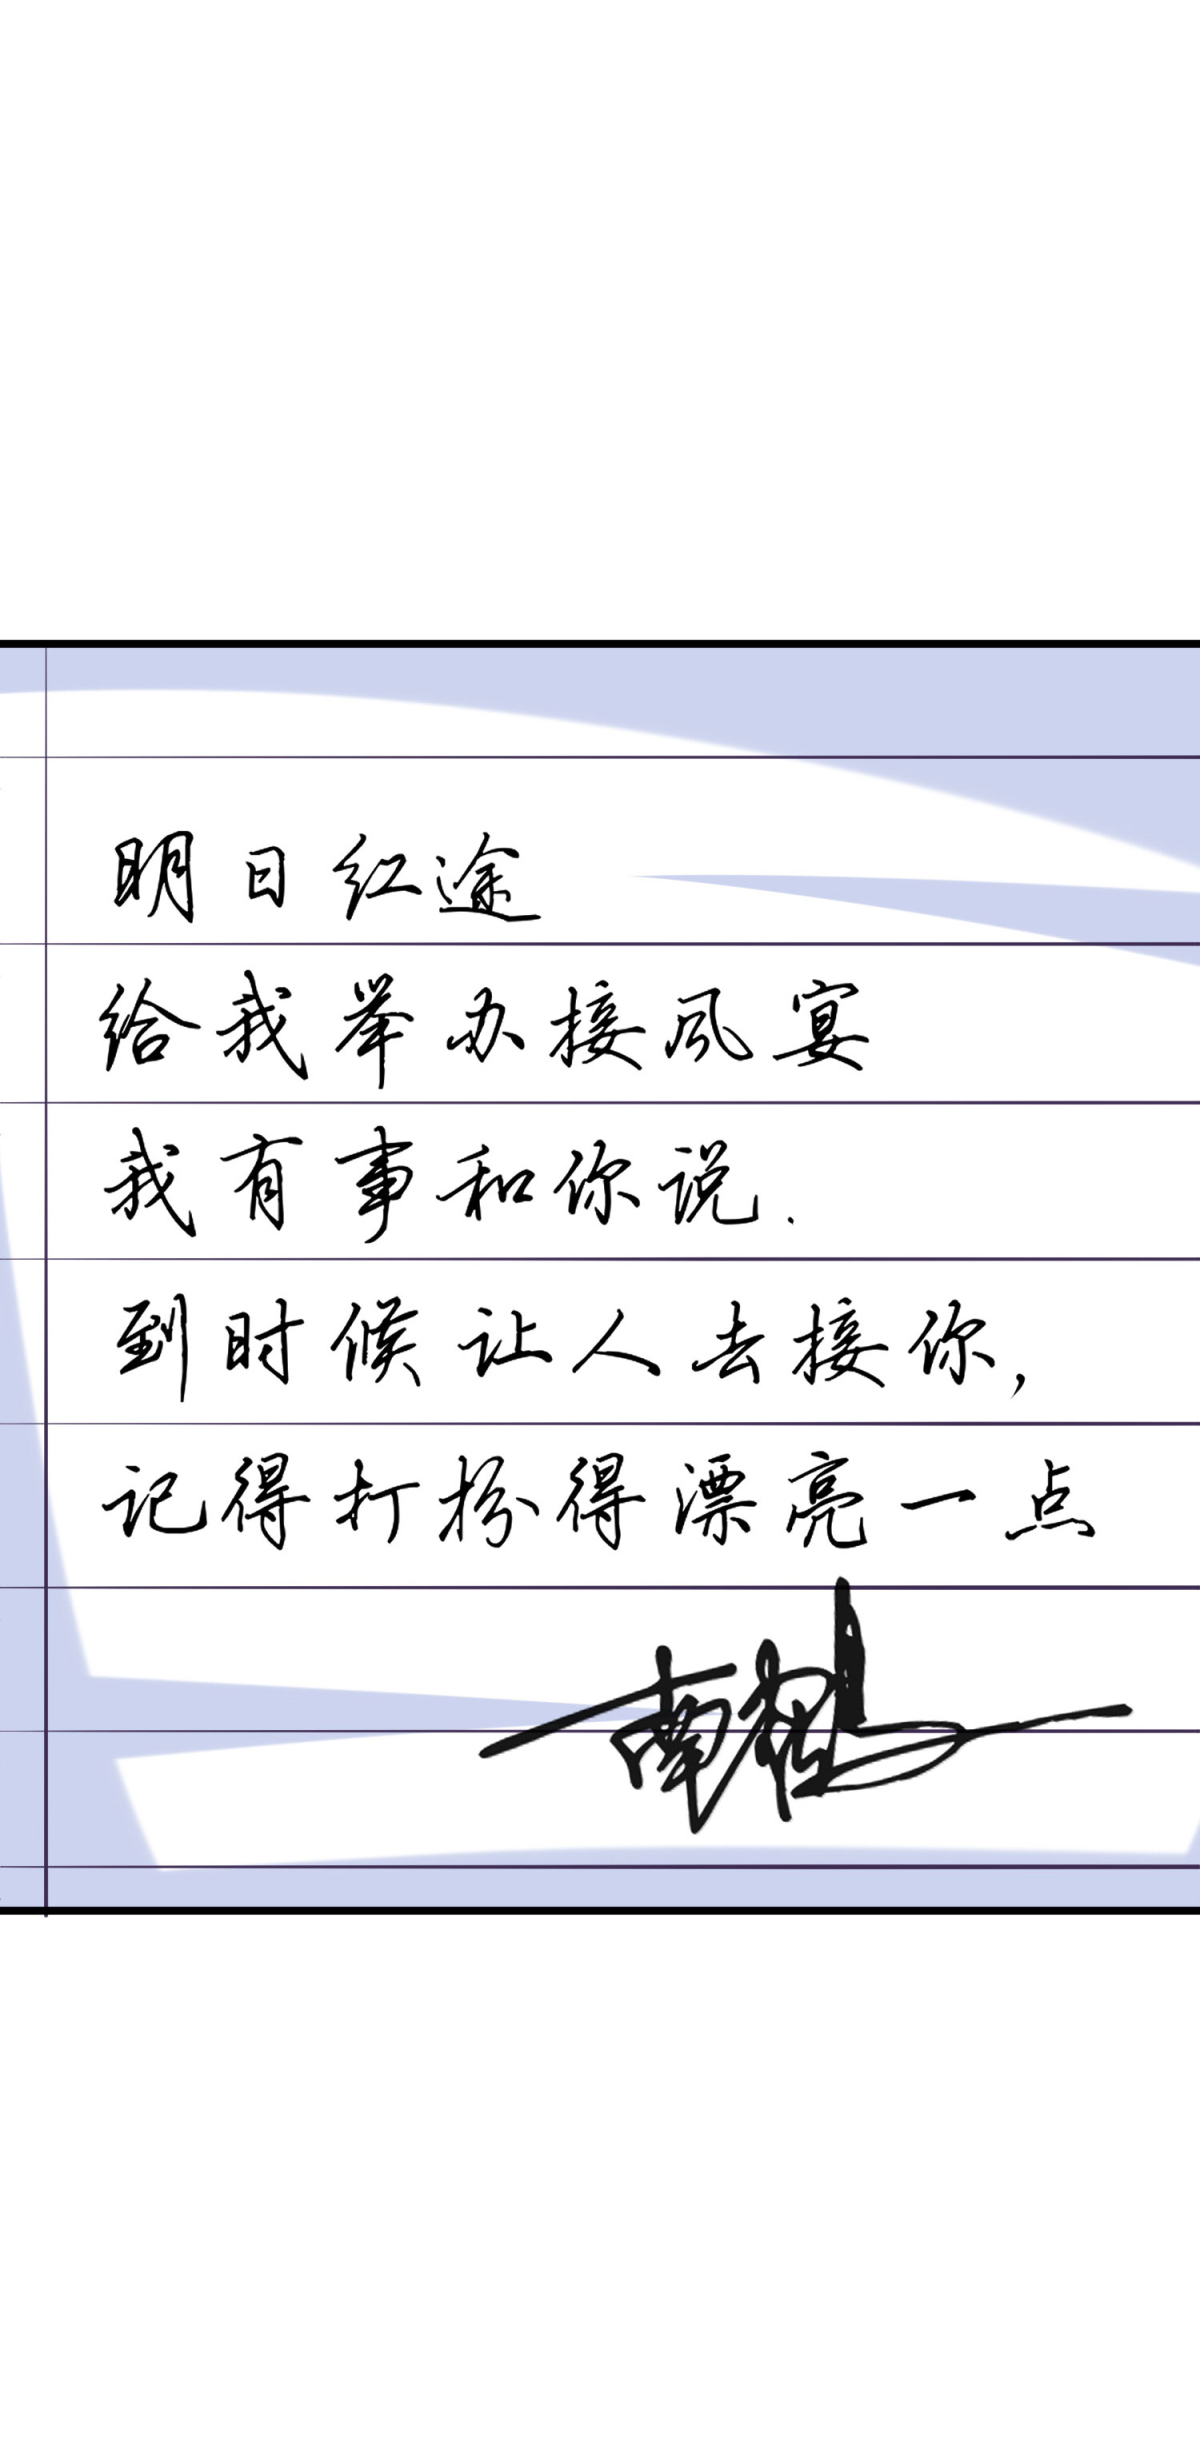 明日红途
给我举办接风宴
我有事和你说.
到时候让人去接你,
记得打扮得漂亮一点
南